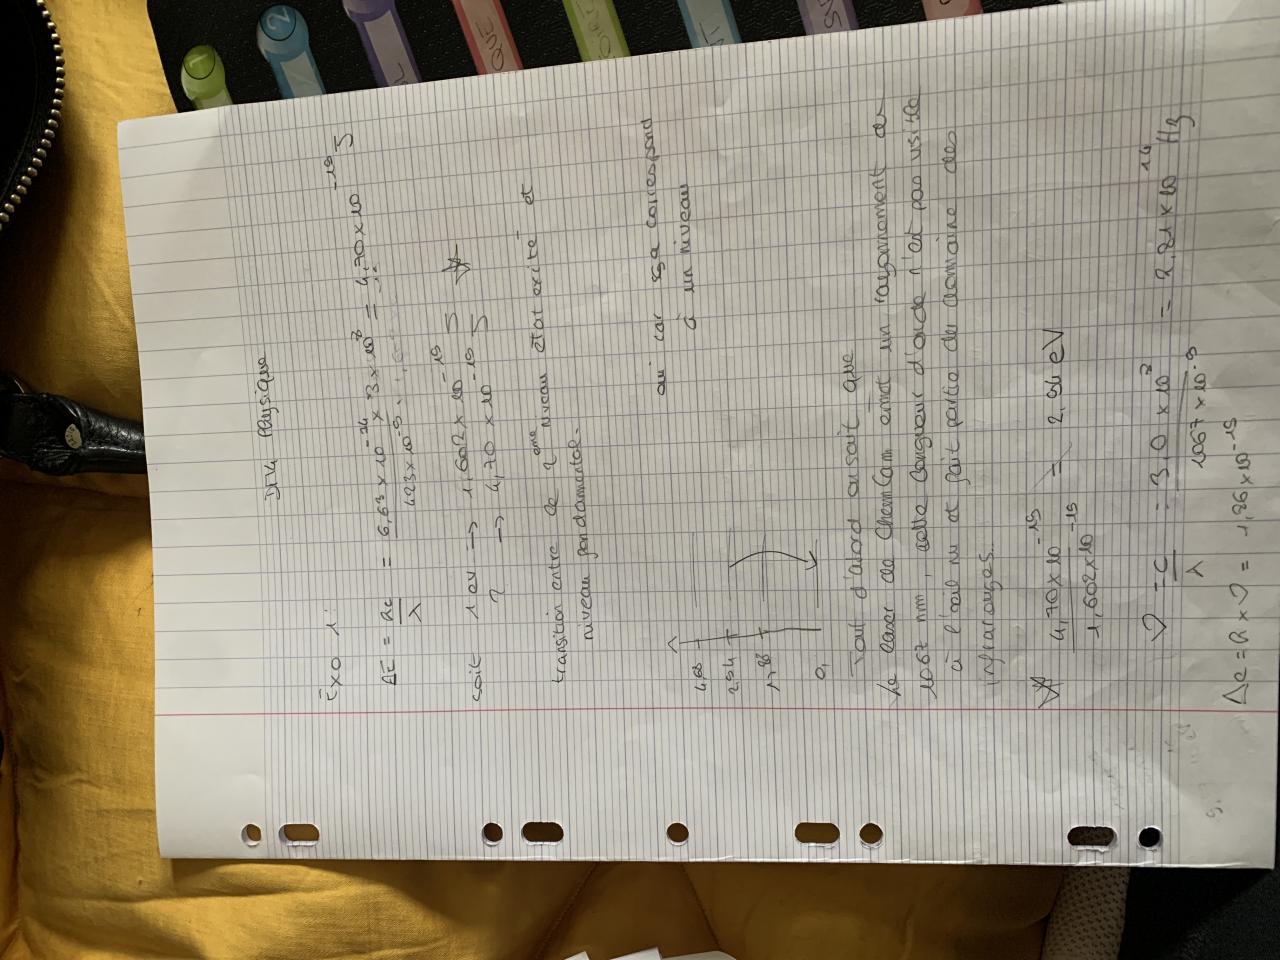 DM4 Physique
Exo 1:
ΔE = hc/λ = 6,63 × 10^-34 × 3 × 10^8 / 423 × 10^-9 = 4,70 × 10^-19 J
soit 1 eV → 1,602 × 10^-19 J
? → 4,70 × 10^-19 J
transition entre le 2ème niveau état exité et
niveau fondamental.
oui car ssa correspond
à un niveau
4,68
2,94
1,88
0,
Tout d'abord on sait que
le laser de ChemCam émet un rayonnement de
1067 nm, cette longueur d'onde n'est pas visible
à l'œil nu et fait partie du domaine des
infrarouges.
4,70 × 10^-19 / 1,602 × 10^-19 = 2,94 eV
ν = c/λ = 3,0 × 10^8 / 1067 × 10^-9 = 2,81 × 10^14 Hz
Δe = h × ν = 1,86 × 10^-19
1
2
QUE